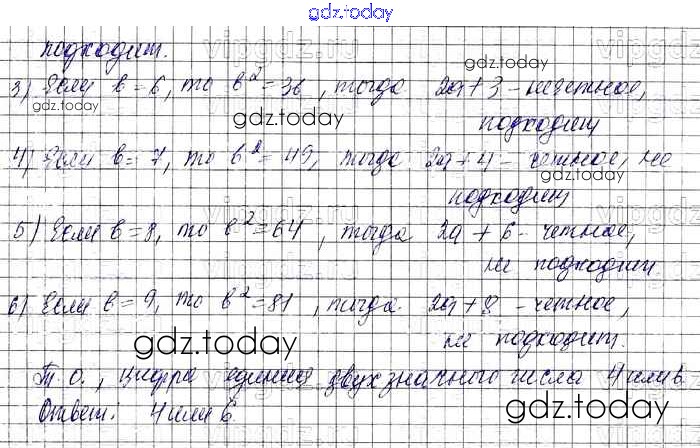 gdz.today
подходит.
3) Если b = 6, то b² = 36, тогда 2a + 3 - нечетное,
подходит
4) Если b = 7, то b² = 49, тогда 2a + 4 - четное, не
подходит
5) Если b = 8, то b² = 64, тогда 2a + 6 - четное,
не подходит.
6) Если b = 9, то b² = 81, тогда 2a + 8 - четное,
не подходит.
Т. о., цифра единиц двухзначного числа 4 или 6.
Ответ. 4 или 6.
gdz.today
gdz.today
gdz.today
gdz.today
gdz.today
gdz.today
vipgdz.ru
vipgdz.ru